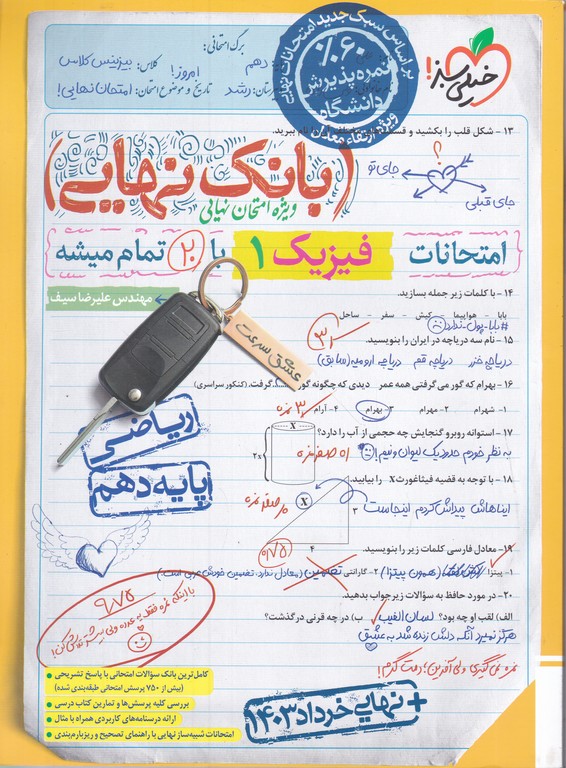 خیلی سبز!
براساس سبک جدید امتحانات نهایی
٪۶۰
نمره پذیرش
دانشگاه
ویژه ارتقاء معدل
برگ امتحانی:
دهم
کلاس: بیزینس کلاس
امروز!
رشد
تاریخ و موضوع امتحان: امتحان نهایی!
۱۳ - شکل قلب را بکشید و
نام ببرید.
؟
جای تو
جای قبلی
(بانک نهایی)
ویژه امتحان نهایی
امتحانات فیزیک ۱ با ۲۰ تمام میشه
مهندس علیرضا سیف
۱۴ - با کلمات زیر جمله بسازید.
بابا - هواپیما - کیش - سفر - ساحل
#بابا-پول-ندارد
عشق سرعت
۱۵ - نام سه دریاچه در ایران را بنویسید.
دریاچه خزر دریاچه قم دریاچه ارومیه (سابق)
۱۶ - بهرام که گور می‌گرفتی همه عمر دیدی که چگونه گور ..... گرفت. (کنکور سراسری)
۱- شهرام ۲- مهرام ۳- بهرام ۴- آرام
۳ نمره
۱۷ - استوانه روبرو گنجایش چه حجمی از آب را دارد؟
به نظر خودم حدود یک لیوان و نیم!
X
2x
۱۸ - با توجه به قضیه فیثاغورث X را بیابید.
ایناهاش پیداش کردم اینجاست
X
۳
۴
ریاضی
پایه دهم
۱۹ - معادل فارسی کلمات زیر را بنویسید.
۱- پیتزا (همون پیتزا) ۲- گارانتی تضمین (معادل نداره. تضمین خودش عربی است)
۲۰ - در مورد حافظ به سؤالات زیر جواب بدهید.
الف) لقب او چه بود؟ لسان الغیب ب) در چه قرنی درگذشت؟
هرگز نمیرد آنکه دلش زنده شد به عشق
نمره نمی‌گیری ولی آفرین؛ دمت گرم!
۹/۷۵
کامل‌ترین بانک سؤالات امتحانی با پاسخ تشریحی
(بیش از ۷۵۰ پرسش امتحانی طبقه‌بندی شده)
بررسی کلیه پرسش‌ها و تمارین کتاب درسی
ارائه درسنامه‌های کاربردی همراه با مثال
امتحانات شبیه‌ساز نهایی با راهنمای تصحیح و ریزبارم‌بندی
+ نهایی خرداد ۱۴۰۳